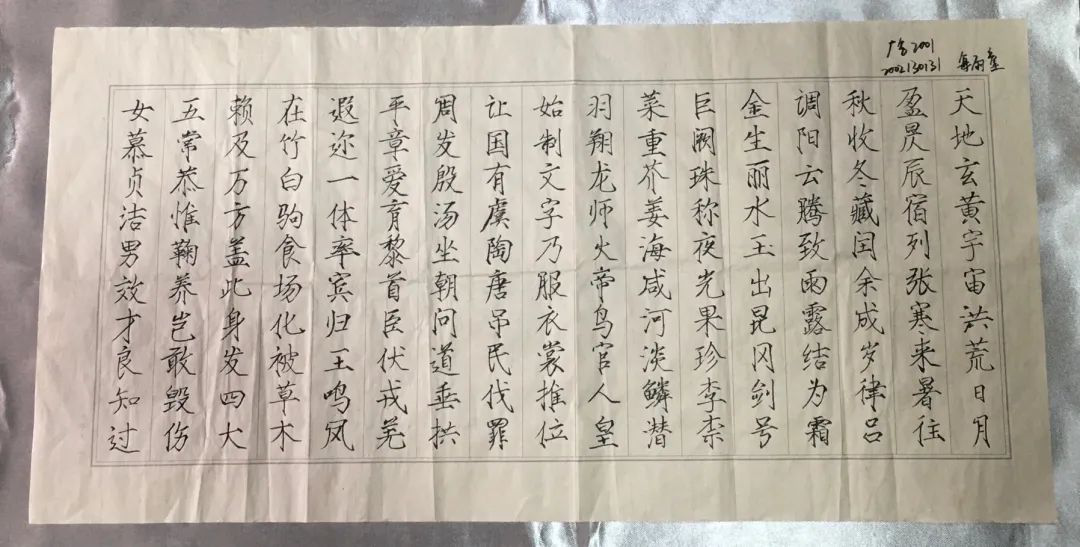 广告2001
2002130131
天地玄黄宇宙洪荒日月
盈昃辰宿列张寒来暑往
秋收冬藏闰余成岁律吕
调阳云腾致雨露结为霜
金生丽水玉出昆冈剑号
巨阙珠称夜光果珍李柰
菜重芥姜海咸河淡鳞潜
羽翔龙师火帝鸟官人皇
始制文字乃服衣裳推位
让国有虞陶唐吊民伐罪
周发殷汤坐朝问道垂拱
平章爱育黎首臣伏戎羌
遐迩一体率宾归王鸣凤
在竹白驹食场化被草木
赖及万方盖此身发四大
五常恭惟鞠养岂敢毁伤
女慕贞洁男效才良知过